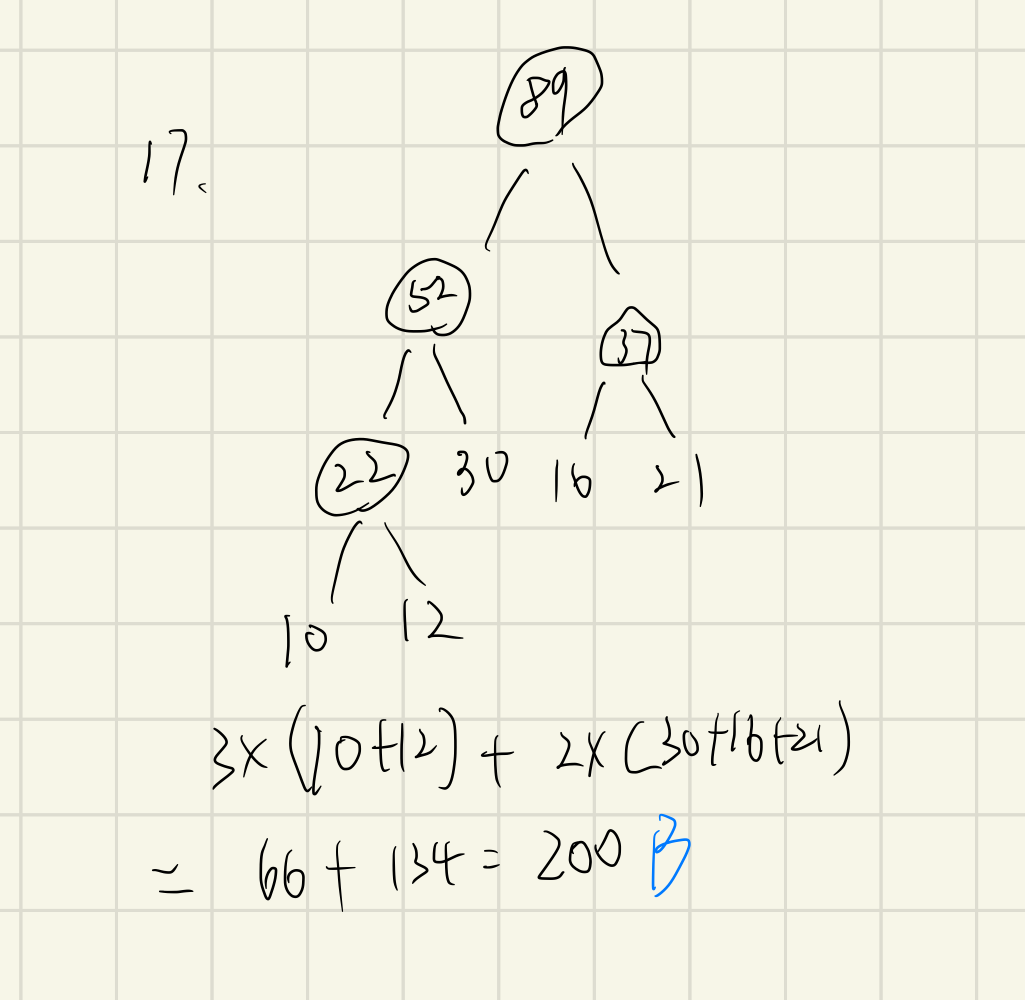 89
17.
52
37
22 30 16 21
10 12
3×(10+12)+2×(30+16+21)
= 66+134=200 B